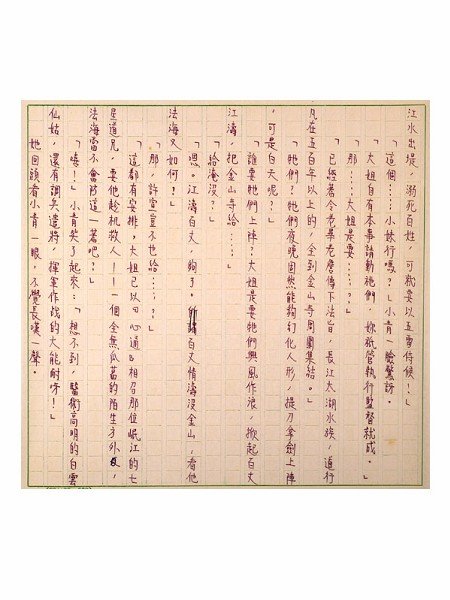 江水出堤，溺死百姓，可就要以五雷侍候！」
「這個……小妹行嗎？」小青一臉驚訝。
「大姐自有本事請動祂們，妳祇管執行監督就成。」
「那……大姐是要……？」
「已經著令我輩老詹傳下法旨，長江太湖水族，道行
凡在五百年以上的，全到金山寺周圍集結。」
「牠們？牠們夜晚固然能夠幻化人形，提刀拿劍上陣
，可是白天呢？」
「誰要牠們上陣？大姐是要牠們興風作浪，掀起百丈
江濤，把金山寺給……」
「給淹沒？」
「嗯。江濤百丈，夠了。百丈情濤沒金山，看他
法海又如何？」
「那，許宣豈不也給……？」
「這都有安排，大姐已以『心通』相召那位岷江的七
星道兄，要他趁機救人——一個全無瓜葛的陌生方外，
法海當不會防這一著吧？」
「嘻！」小青笑了起來：「想不到，醫術高明的白雲
仙姑，還有調兵遣將，揮軍作戰的大能耐呀！」
她回頭看小青一眼，不覺長嘆一聲。